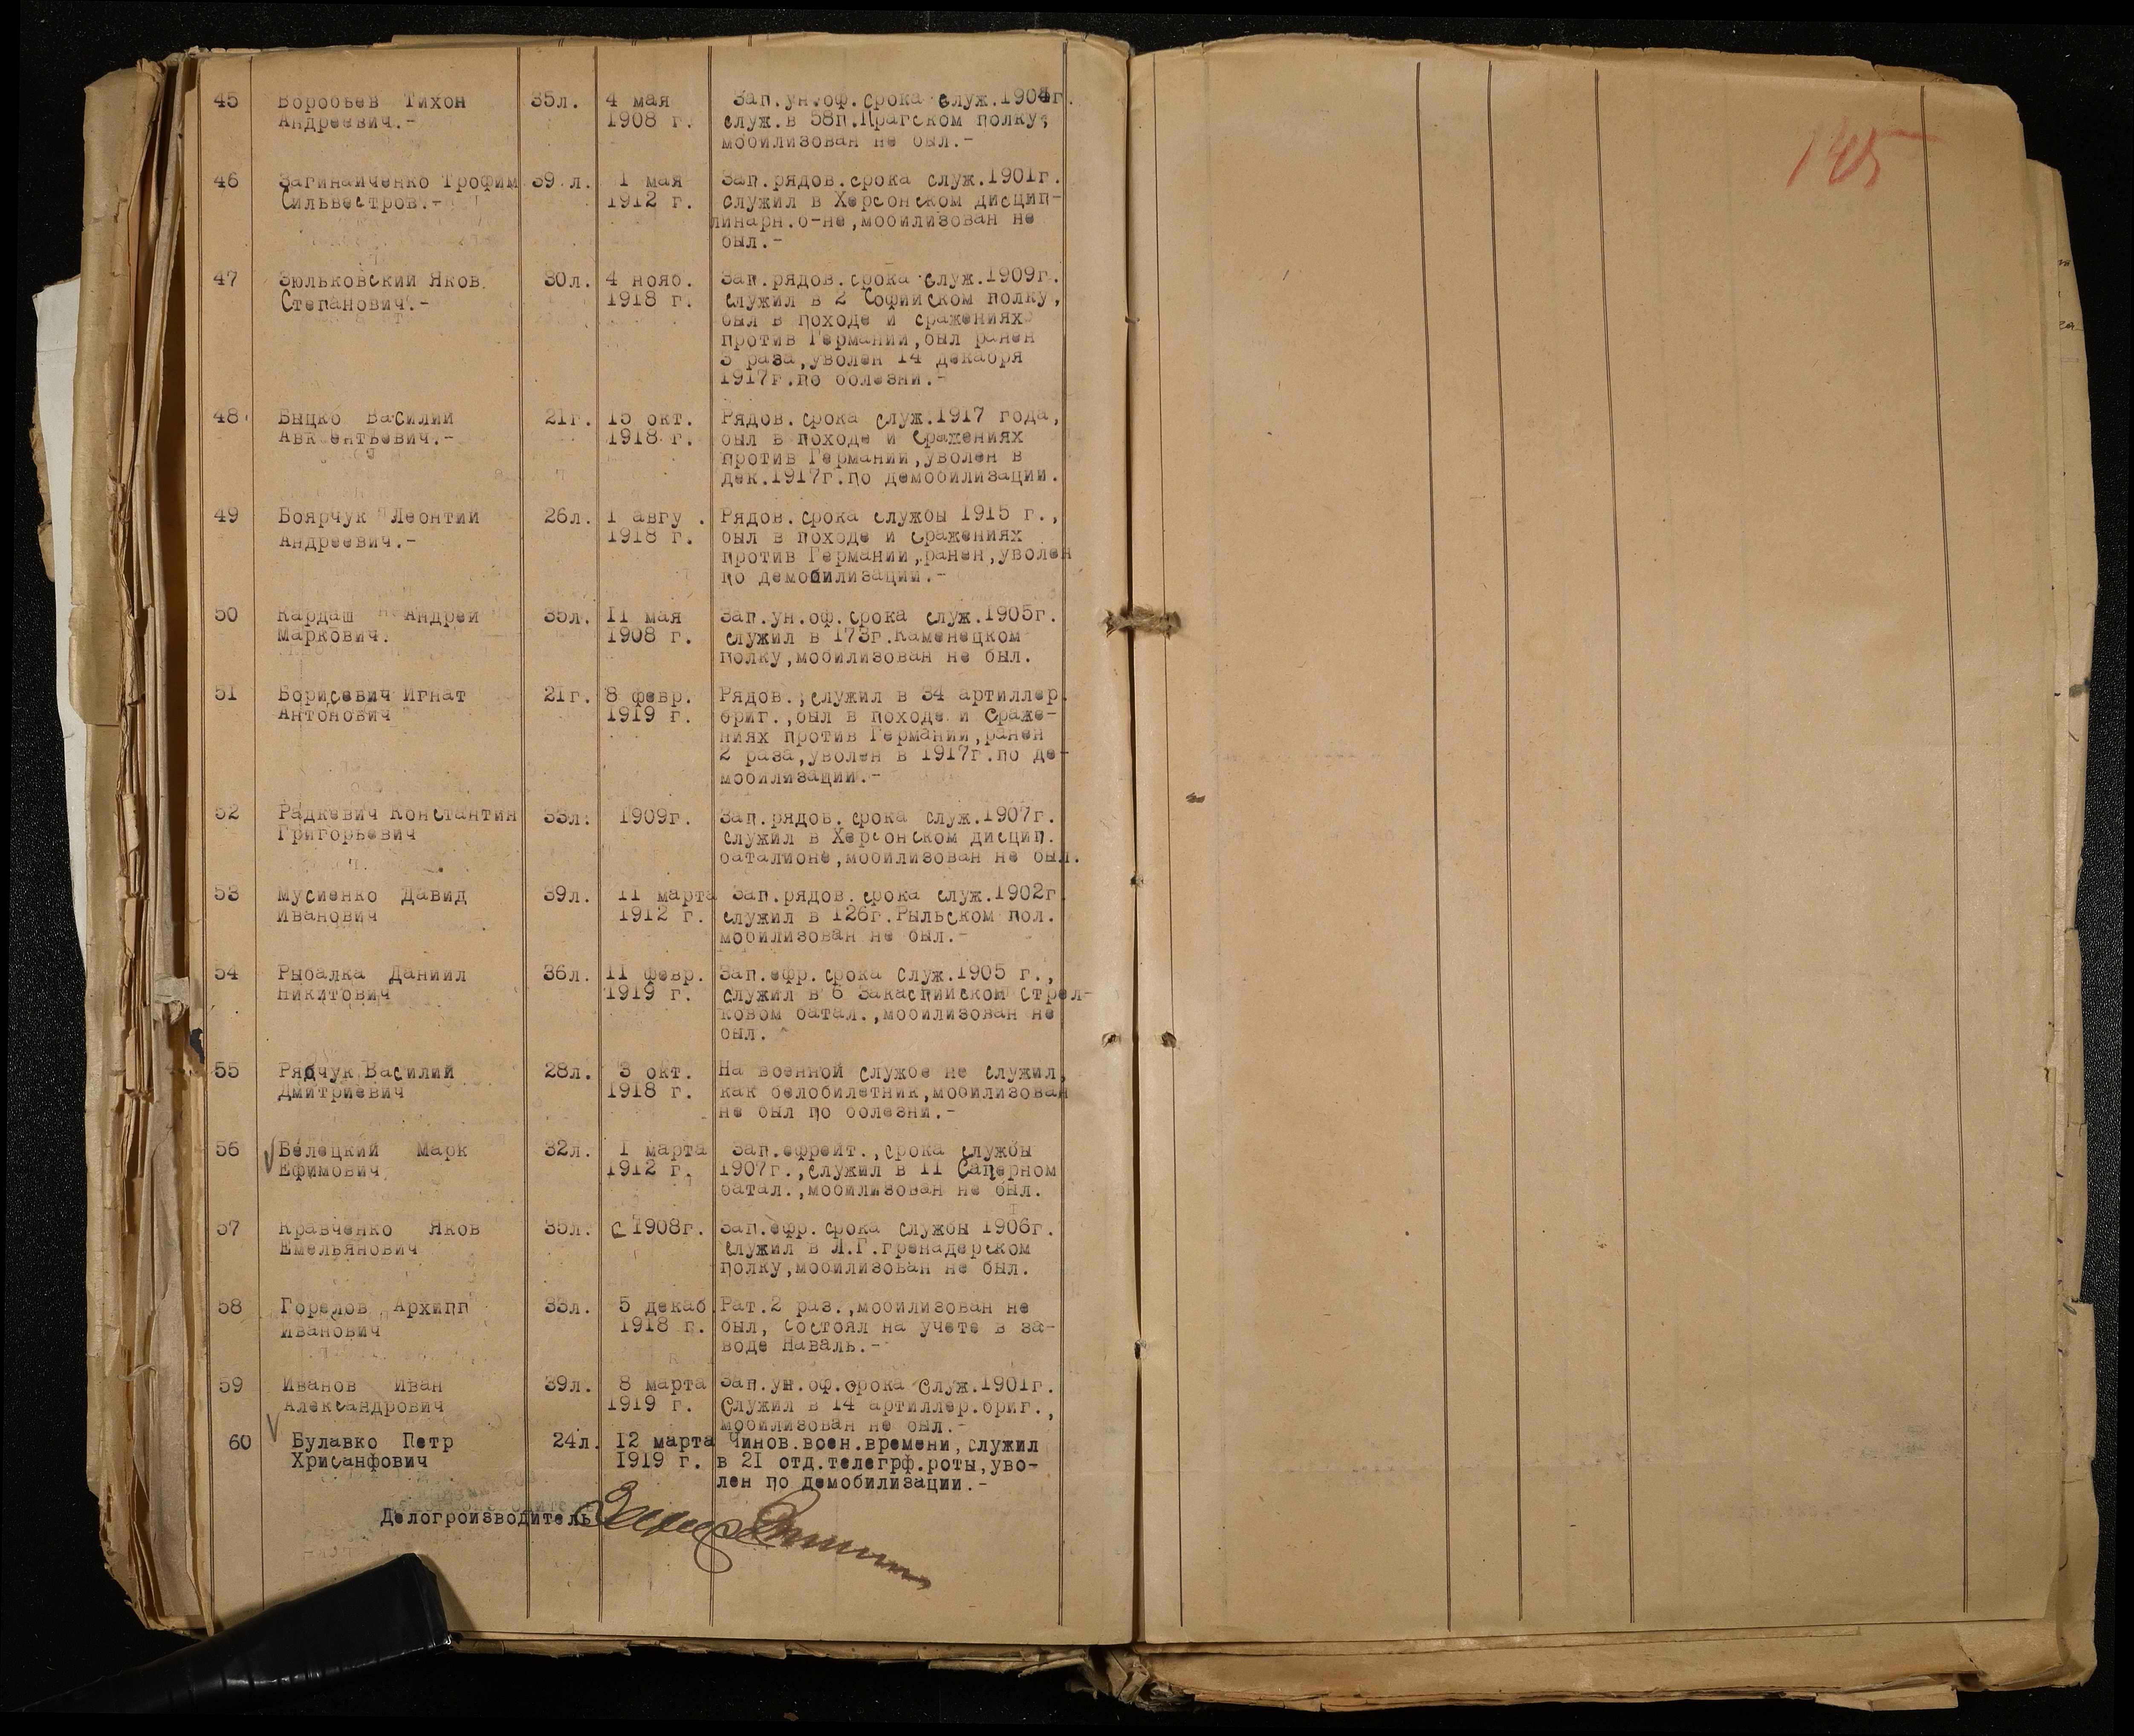 45 Воробьев Тихон 35л. 4 мая Зап.ун.оф.срока служ.1904г.
Андреевич.- 1908 г. служ.в 58п.Прагском полку,
мобилизован не был.-
46 Загинайченко Трофим 39 л. 1 мая Зап.рядов.срока служ.1901г.
Сильвестров.- 1912 г. служил в Херсонском дисцип-
линарн.б-не,мобилизован не
был.-
47 Зюльковский Яков 30л. 4 нояб. Зап.рядов.срока служ.1909г.
Степанович.- 1918 г. служил в 2 Софийском полку,
был в походе и сражениях
против Германии,был ранен
3 раза,уволен 14 декабря
1917г.по болезни.-
48 Быцко Василий 21г. 15 окт. Рядов.срока служ.1917 года,
Авксентьевич.- 1918 г. был в походе и сражениях
против Германии,уволен в
дек.1917г.по демобилизации.
49 Боярчук Леонтий 26л. 1 авгу . Рядов.срока службы 1915 г.,
Андреевич.- 1918 г. был в походе и сражениях
против Германии,ранен,уволен
по демобилизации.-
50 Кардаш Андрей 35л. 11 мая Зап.ун.оф.срока служ.1905г.
Маркович. 1908 г. служил в 173г.Каменецком
полку,мобилизован не был.
51 Борисевич Игнат 21г. 8 февр. Рядов.,служил в 34 артиллер.
Антонович 1919 г. бриг.,был в походе и сраже-
ниях против Германии,ранен
2 раза,уволен в 1917г.по де-
мобилизации.-
52 Радкевич Константин 33л. 1909г. Зап.рядов.срока служ.1907г.
Григорьевич служил в Херсонском дисцип.
баталионе,мобилизован не был.
53 Мусиенко Давид 39л. 11 марта Зап.рядов.срока служ.1902г
Иванович 1912 г. служил в 126г.Рыльском пол.
мобилизован не был.-
54 Рыбалка Даниил 36л. 11 февр. Зап.ефр.срока служ.1905 г.,
Никитович 1919 г. служил в 6 Закаспийском стрел-
ковом батал.,мобилизован не
был.
55 Рябчук Василий 28л. 3 окт. На военной службе не служил,
Дмитриевич 1918 г. как белобилетник,мобилизован
не был по болезни.-
56 Белецкий Марк 32л. 1 марта Зап.ефрейт.,срока службы
Ефимович 1912 г. 1907г.,служил в 11 Саперном
батал.,мобилизован не был.
57 Кравченко Яков 35л. с 1908г. Зап.ефр.срока службы 1906г.
Емельянович служил в Л.Г.гренадерском
полку,мобилизован не был.
58 Горелов Архипп 33л. 5 декаб. Рат.2 раз.,мобилизован не
Иванович 1918 г. был, состоял на учете в за-
воде Наваль.-
59 Иванов Иван 39л. 8 марта Зап.ун.оф.срока служ.1901г.
Александрович 1919 г. Служил в 14 артиллер.бриг.,
мобилизован не был.-
60 Булавко Петр 24л. 12 марта Чинов.воен.времени,служил
Хрисанфович 1919 г. в 21 отд.телегрф.роты,уво-
лен по демобилизации.-
Делогроизводитель
145